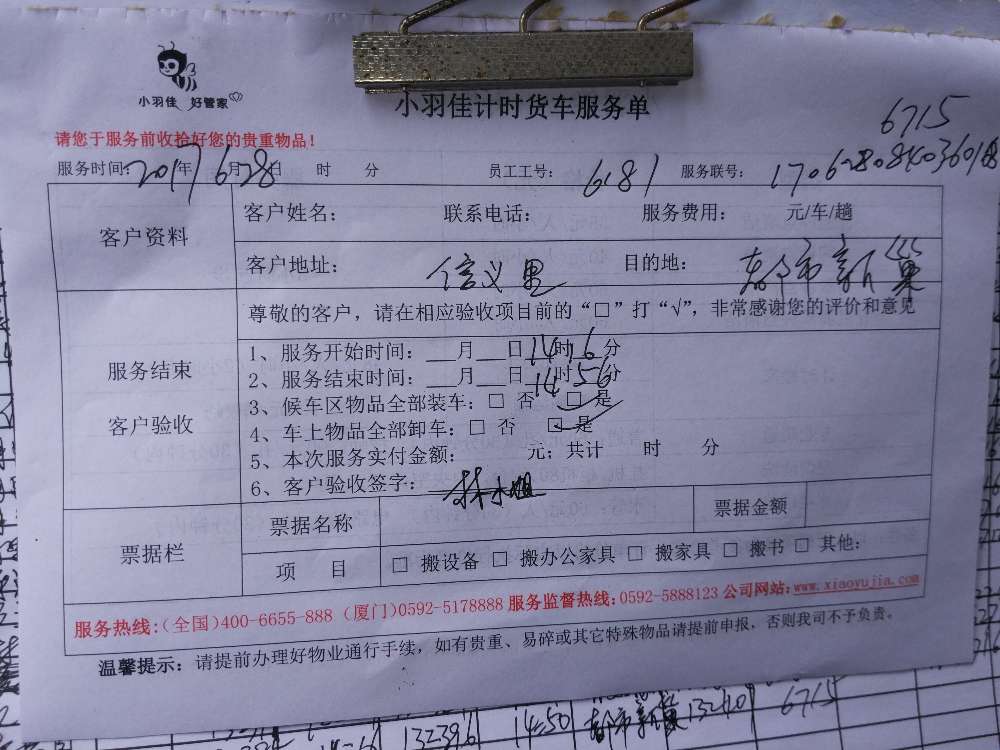 小羽佳 好管家
小羽佳计时货车服务单
6715
请您于服务前收拾好您的贵重物品！
服务时间：2017年6月28日 时 分 员工工号：6181 服务联号：
客户资料
客户姓名： 联系电话： 服务费用： 元/车/趟
客户地址：信义里 目的地：东都市新巢
尊敬的客户，请在相应验收项目前的“□”打“√”，非常感谢您的评价和意见
服务结束
客户验收
1、服务开始时间：___月___日14时16分
2、服务结束时间：___月___日14时56分
3、候车区物品全部装车：□ 否 □ 是
4、车上物品全部卸车：□ 否 □ 是
5、本次服务实付金额： 元；共计 时 分
6、客户验收签字：林小姐
票据栏
票据名称 票据金额
项 目 □ 搬设备 □ 搬办公家具 □ 搬家具 □ 搬书 □ 其他：
服务热线：（全国）400-6655-888（厦门）0592-5178888 服务监督热线：0592-5888123 公司网站：www.xiaoyujia.com
温馨提示：请提前办理好物业通行手续，如有贵重、易碎或其它特殊物品请提前申报，否则我司不予负责。
132396 14=50 132410 6715